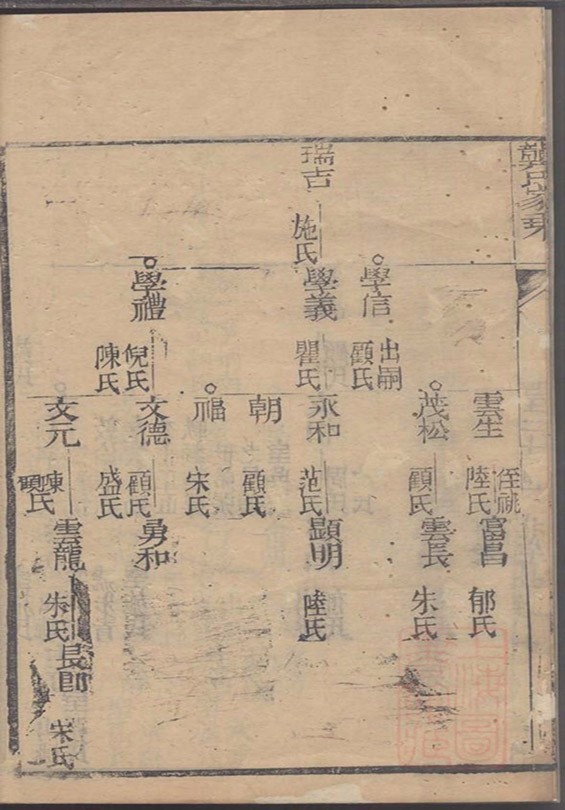 龔氏家乘
瑞吉
施氏
學信
出嗣
顧氏
學義
瞿氏
學禮
倪氏
陳氏
雲生
侄祧
陸氏
茂松
顧氏
永和
范氏
朝
顧氏
福
宋氏
文德
顧氏
盛氏
文元
陳
顧氏
富昌
郁氏
雲長
朱氏
顯明
陸氏
勇和
雲龍
朱氏
長郎
宋氏